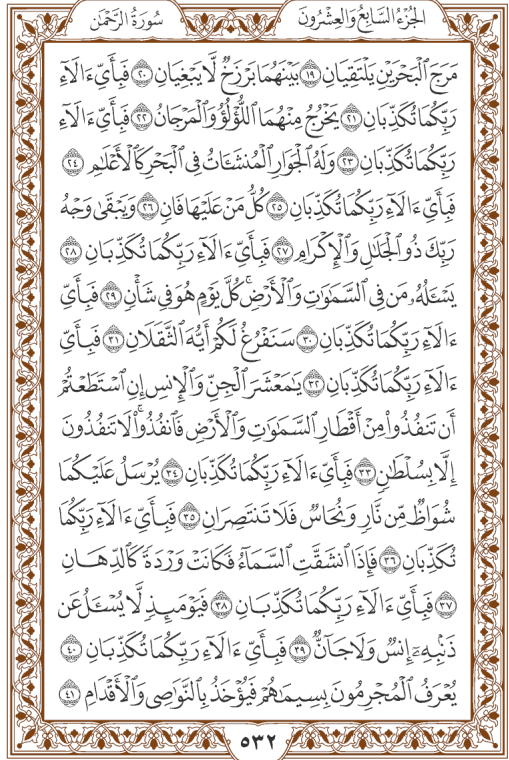 الجزء السابع والعشرون
سورة الرحمن
مَرَجَ ٱلْبَحْرَيْنِ يَلْتَقِيَانِ ١٩ بَيْنَهُمَا بَرْزَخٌ لَّا يَبْغِيَانِ ٢٠ فَبِأَىِّ ءَالَآءِ
رَبِّكُمَا تُكَذِّبَانِ ٢١ يَخْرُجُ مِنْهُمَا ٱللُّؤْلُؤُ وَٱلْمَرْجَانُ ٢٢ فَبِأَىِّ ءَالَآءِ
رَبِّكُمَا تُكَذِّبَانِ ٢٣ وَلَهُ ٱلْجَوَارِ ٱلْمُنشَـَٔاتُ فِى ٱلْبَحْرِ كَٱلْأَعْلَٰمِ ٢٤
فَبِأَىِّ ءَالَآءِ رَبِّكُمَا تُكَذِّبَانِ ٢٥ كُلُّ مَنْ عَلَيْهَا فَانٍ ٢٦ وَيَبْقَىٰ وَجْهُ
رَبِّكَ ذُو ٱلْجَلَٰلِ وَٱلْإِكْرَامِ ٢٧ فَبِأَىِّ ءَالَآءِ رَبِّكُمَا تُكَذِّبَانِ ٢٨
يَسْـَٔلُهُۥ مَن فِى ٱلسَّمَٰوَٰتِ وَٱلْأَرْضِ ۚ كُلَّ يَوْمٍ هُوَ فِى شَأْنٍ ٢٩ فَبِأَىِّ
ءَالَآءِ رَبِّكُمَا تُكَذِّبَانِ ٣٠ سَنَفْرُغُ لَكُمْ أَيُّهَ ٱلثَّقَلَانِ ٣١ فَبِأَىِّ
ءَالَآءِ رَبِّكُمَا تُكَذِّبَانِ ٣٢ يَٰمَعْشَرَ ٱلْجِنِّ وَٱلْإِنسِ إِنِ ٱسْتَطَعْتُمْ
أَن تَنفُذُوا۟ مِنْ أَقْطَارِ ٱلسَّمَٰوَٰتِ وَٱلْأَرْضِ فَٱنفُذُوا۟ ۚ لَا تَنفُذُونَ
إِلَّا بِسُلْطَٰنٍ ٣٣ فَبِأَىِّ ءَالَآءِ رَبِّكُمَا تُكَذِّبَانِ ٣٤ يُرْسَلُ عَلَيْكُمَا
شُوَاظٌ مِّن نَّارٍ وَنُحَاسٌ فَلَا تَنتَصِرَانِ ٣٥ فَبِأَىِّ ءَالَآءِ رَبِّكُمَا
تُكَذِّبَانِ ٣٦ فَإِذَا ٱنشَقَّتِ ٱلسَّمَآءُ فَكَانَتْ وَرْدَةً كَٱلدِّهَانِ
٣٧ فَبِأَىِّ ءَالَآءِ رَبِّكُمَا تُكَذِّبَانِ ٣٨ فَيَوْمَئِذٍ لَّا يُسْـَٔلُ عَن
ذَنۢبِهِۦٓ إِنسٌ وَلَا جَآنٌّ ٣٩ فَبِأَىِّ ءَالَآءِ رَبِّكُمَا تُكَذِّبَانِ ٤٠
يُعْرَفُ ٱلْمُجْرِمُونَ بِسِيمَٰهُمْ فَيُؤْخَذُ بِٱلنَّوَٰصِى وَٱلْأَقْدَامِ ٤١
٥٣٢